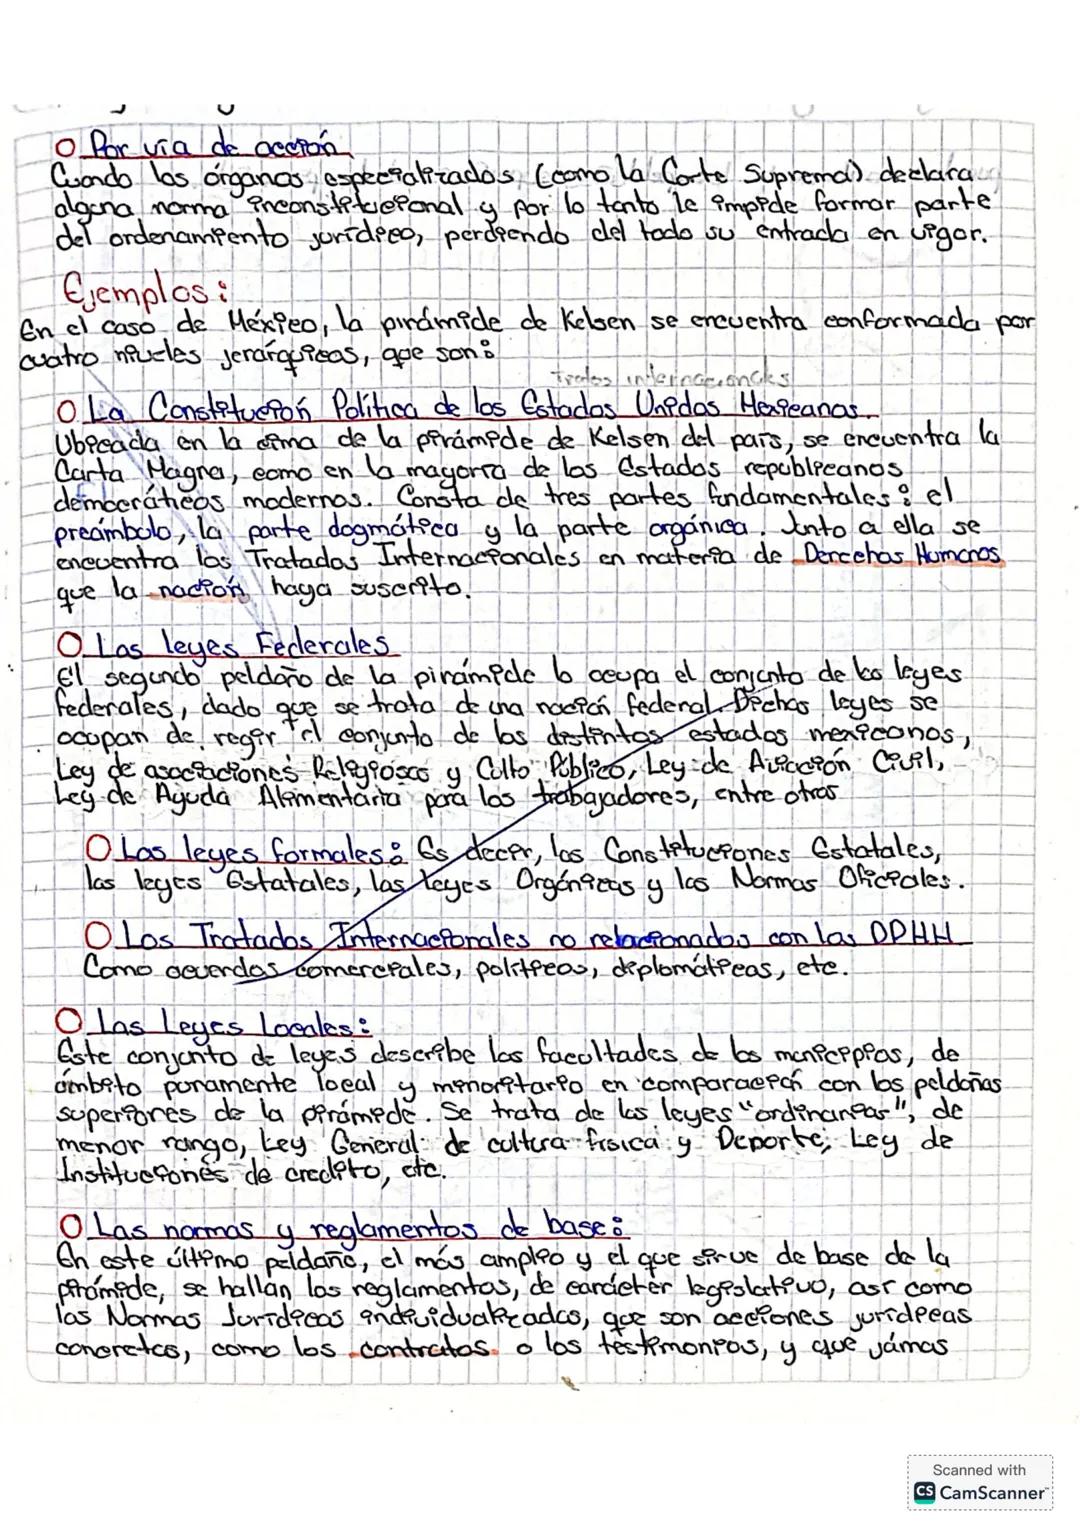 O Por vía de acción
Cuando los órganos especializados (como la Corte Suprema) declara
alguna norma inconstitucional y por lo tanto le impide formar parte
del ordenamiento jurídico, perdiendo del todo su entrada en vigor.
Ejemplos:
En el caso de México, la pirámide de Kelsen se encuentra conformada por
cuatro niveles jerárquicos, que son:
internacionales
O La Constitución Política de los Estados Unidos Mexicanos.
Ubicada en la cima de la pirámide de Kelsen del país, se encuentra la
Carta Magna, como en la mayoría de los Estados republicanos
democráticos modernos. Consta de tres partes fundamentales: el
preámbolo, la parte dogmática y la parte orgánica. Junto a ella se
encuentra los Tratados Internacionales en materia de Derechos Humanos
que la nación haya suscrito.
O Las leyes Federales
El segundo peldaño de la pirámide lo ocupa el conjunto de las leyes
federales, dado que se trata de una nación federal. Dichas leyes se
ocupan de regir el conjunto de los distintos estados mexicanos,
Ley de asociaciones Religiosas y Culto Público, Ley de Aviación Civil,
Ley de Ayuda Alimentaria para los trabajadores, entre otras
O Las leyes formales: Es decir, las Constituciones Estatales,
las leyes Estatales, las leyes Orgánicas y las Normas Oficiales.
O Los Tratados Internacionales no relacionados con los DDHH
Como acuerdos comerciales, políticos, diplomáticas, etc.
O Las Leyes Locales:
Este conjunto de leyes describe las facultades de los municipios, de
ámbito puramente local y minoritario en comparación con los peldaños
superiores de la pirámide. Se trata de las leyes "ordinarias", de
menor rango, Ley General de cultura física y Deporte; Ley de
Instituciones de credito, etc.
O Las normas y reglamentos de base:
En este último peldaño, el más amplio y el que sirve de base de la
pirámide, se hallan los reglamentos, de carácter legislativo, así como
las Normas Jurídicas individualizadas, que son acciones jurídicas
concretas, como los contratos o los testimonios, y que jámas
Scanned with
CS CamScanner